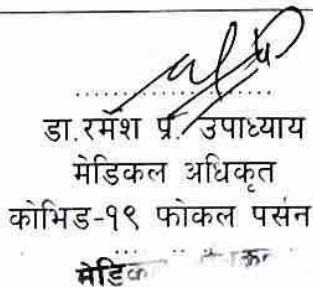 डा.रमेश प्र. उपाध्याय
मेडिकल अधिकृत
कोभिड-१९ फोकल पर्सन